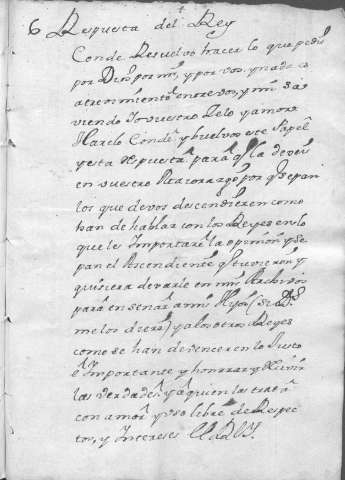 6 Respuesta del Rey
Conde Resuelvo hacer lo que pedis
por Dios por mi, y por vos, y nada es
atrevimiento entre vos, y mi sa
viendo Yo vuestro Zelo y amor
Hazelo Conde y buelvoos este Papel
y esta Respuesta para q la deveis
en vuestro Maiorazgo por q sepan
los que de vos descendieren como
han de hablar con los Reyes en lo
que le Importare la opinion, y se
pan el Ascendiente q tuvieron, y
quisiera dexarle en mis Archivos
para enseñar a mis Hijos (si Ds
me los diere) y a los otros Reyes
como se han de vencer en lo Justo
e Importante y honrrar y
las verdades y a quien las trata
con amor y uso libre de Respec
tos, y Intereses